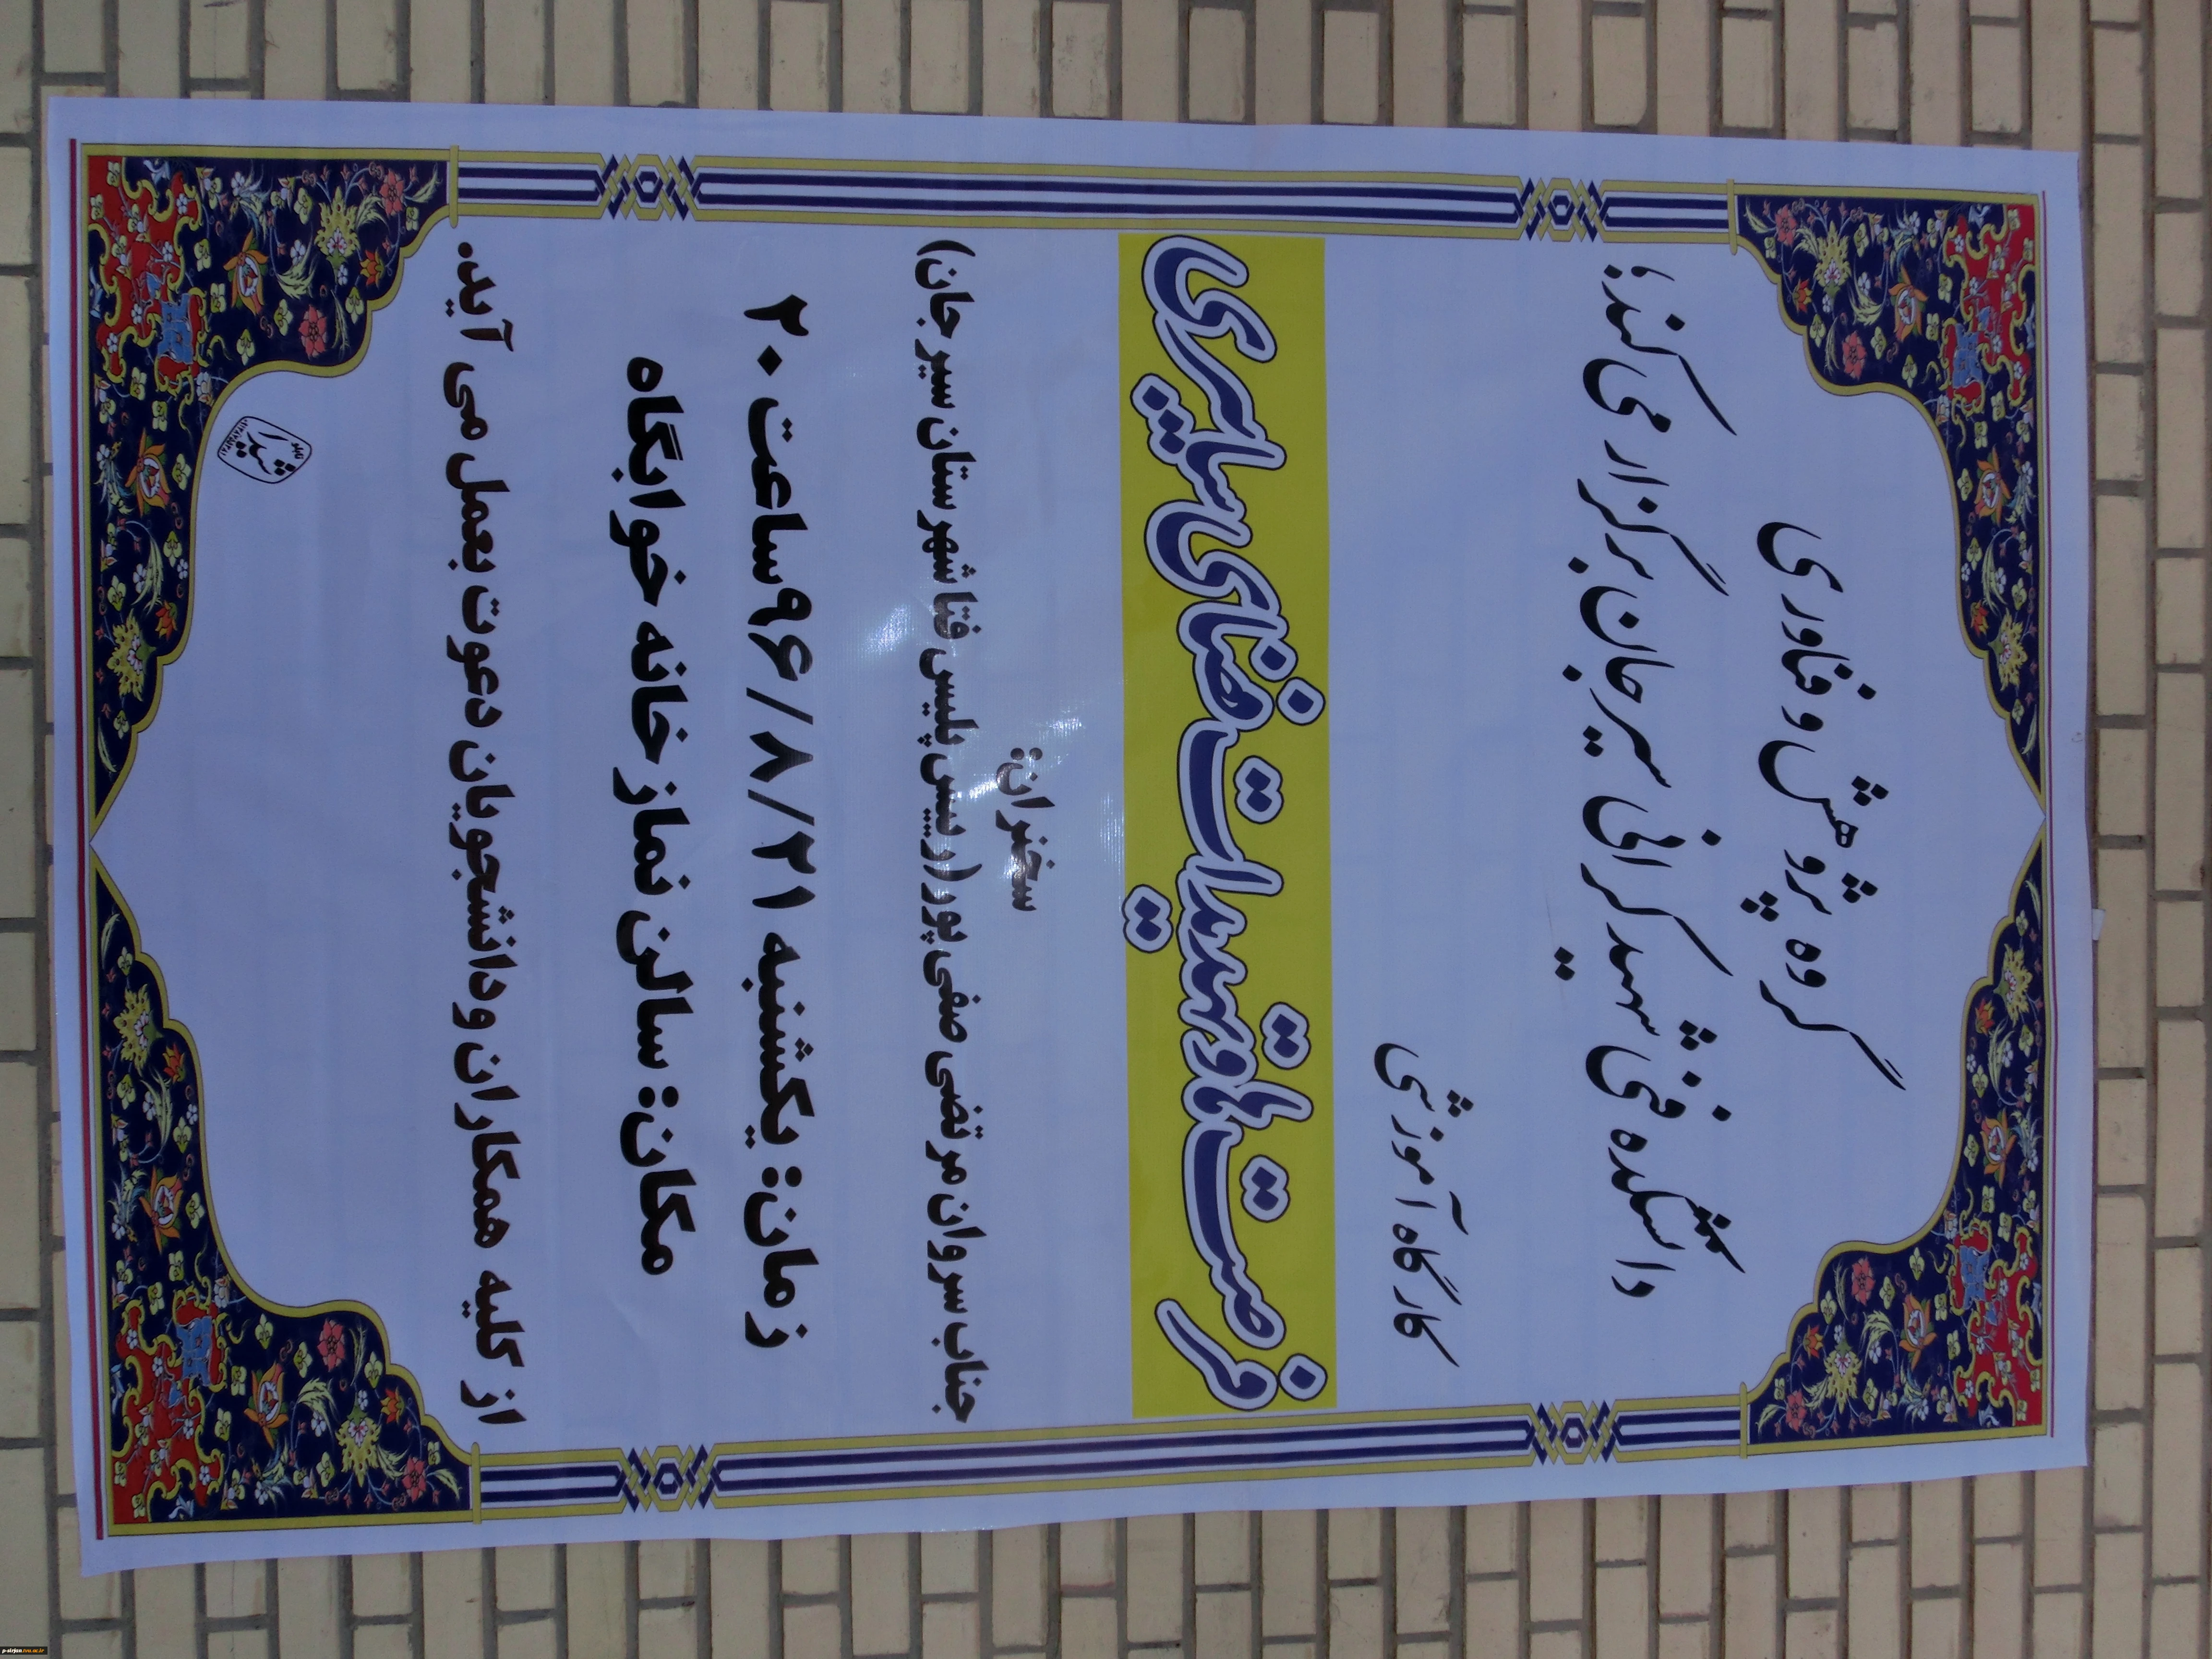 گروه پژوهش و فناوری
دانشکده فنی شهید کرانی سیرجان برگزار می کند؛
کارگاه آموزشی
فرصت ها و تهدیدات فضای سایبری
سخنران:
جناب سروان مرتضی صفی پور(رییس پلیس فتا شهرستان سیرجان)
زمان: یکشنبه ۹۶/۸/۲۱ساعت ۲۰
مکان: سالن نماز خانه خوابگاه
از کلیه همکاران ودانشجویان دعوت بعمل می آید.